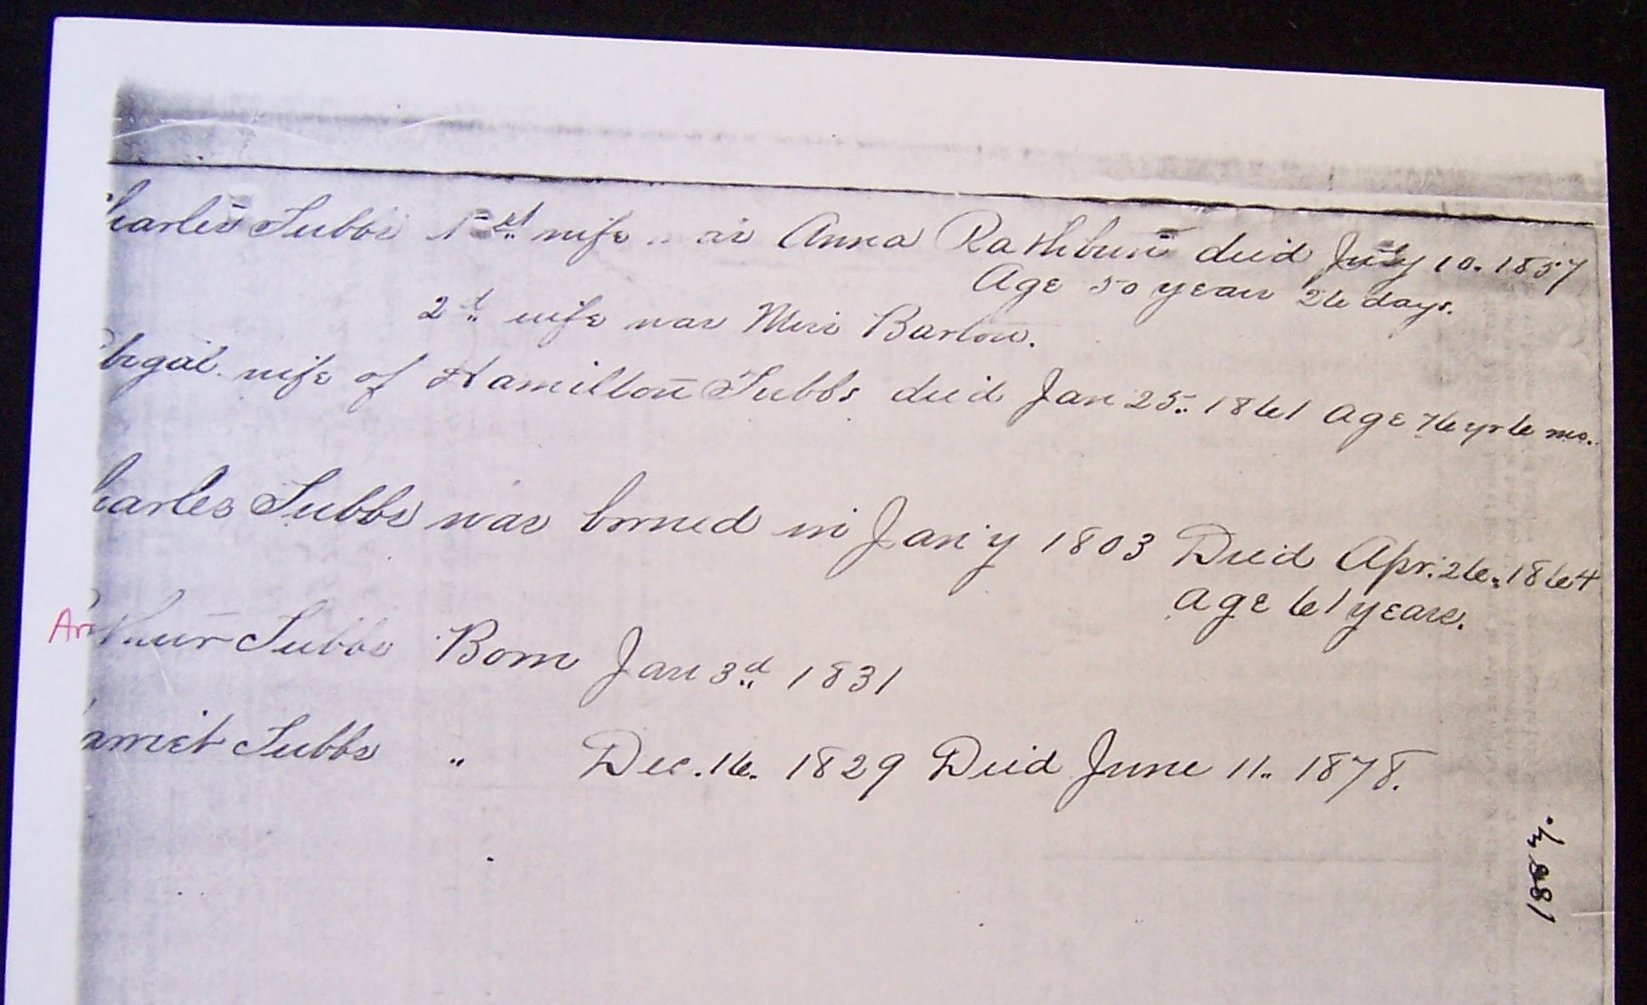 harles Tubbs 1st wife was Anna Rathbun died July 10. 1857
Age 50 year 26 days.
2d wife was Miss Barlow.
bigal wife of Hamilton Tubbs died Jan 25. 1861 age 76 yr 6 mo.
harles Tubbs was borned in Jan'y 1803 Died Apr. 26. 1864
age 61 years.
Arthur Tubbs Born Jan 3d 1831
arriet Tubbs " Dec. 16. 1829 Died June 11. 1878.